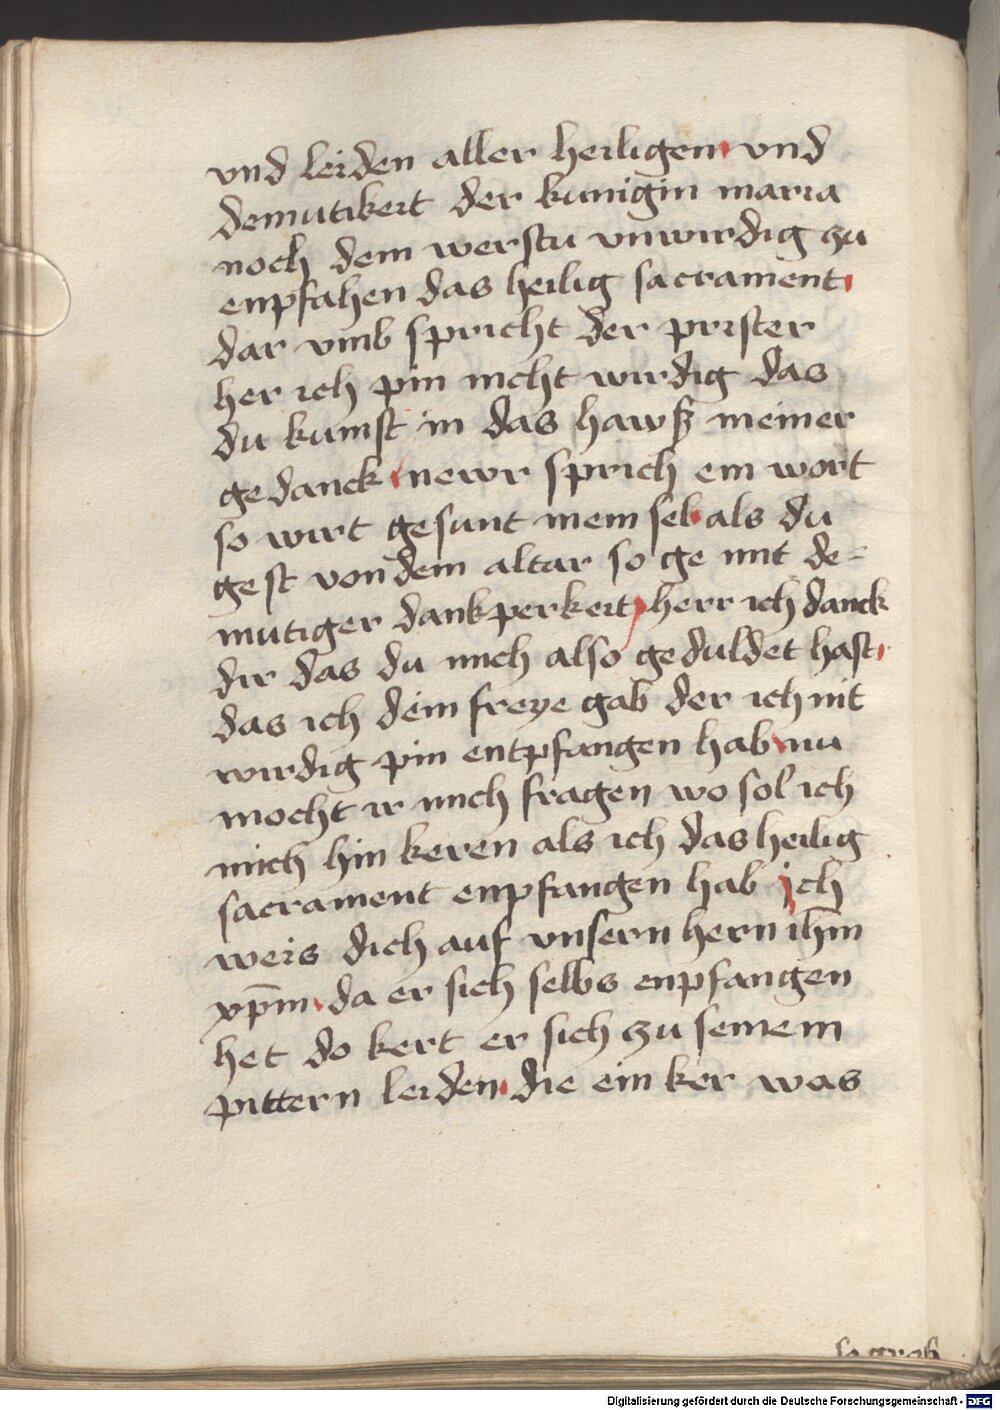 vnd leiden aller heiligen vnd
demutikeit der kunigin maria
noch dem werstu vnwirdig zu
enpfahen das heilig sacrament
dar vmb spricht der prister
her ich pin nicht wirdig das
du kumst in das hawß meiner
gedanck newr sprich ein wort
so wirt gesunt mein sel als du
gest von dem altar so ge mit de=
mutiger dankperkeit herr ich danck
dir das du mich also geduldet hast
das ich dein freye gab der ich nit
wirdig pin entpfangen hab nu
mocht ir mich fragen wo sol ich
mich hin keren als ich das heilig
sacrament enpfangen hab ich
weis dich auf vnsern hern ihm̅
xp̅m da er sich selbs enpfangen
het do kert er sich zu seinem
pittern leiden die ein ker was
so grob
Digitalisierung gefördert durch die Deutsche Forschungsgemeinschaft - DFG